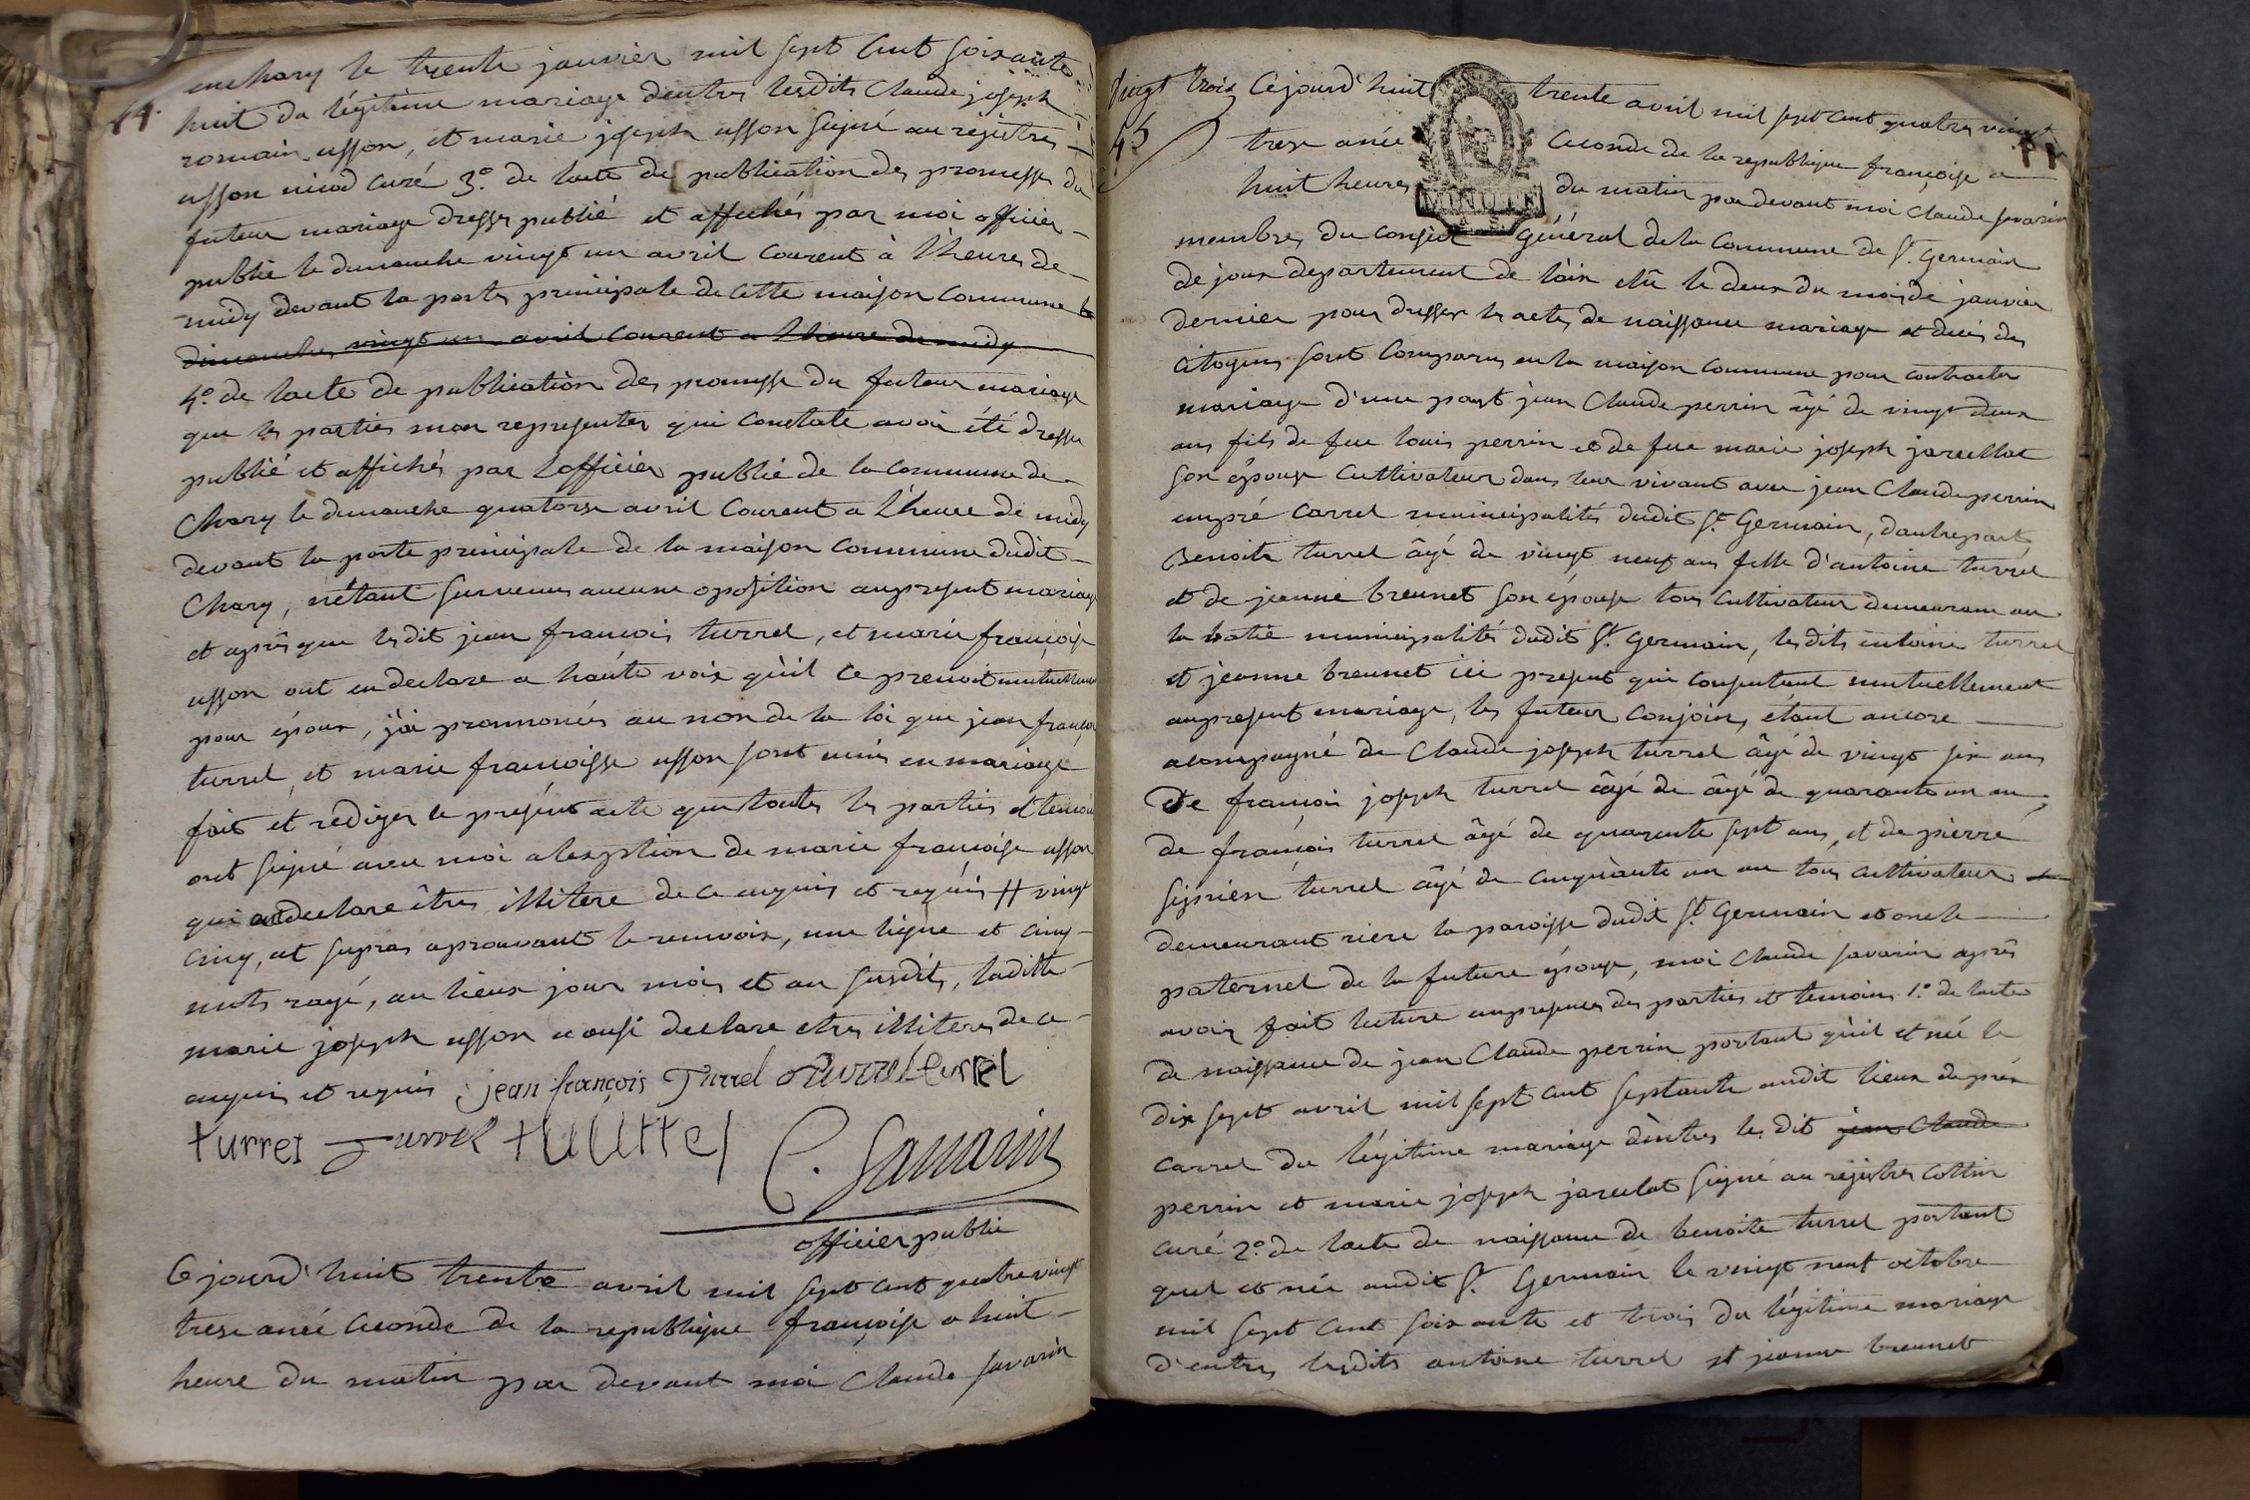 14.
enchary le trente janvier mil sept cent soixante
huit du légitime mariage dentres lesdits Claude joseph
romain usson, et marie joseph usson signé au régistres
usson niod curé 3.º de lacte de publication des promesses du
futeur mariage dresses publié et affichés par moi officier
public le dimanche vingt un avril courent à l'heures de
midy devant la portes principale de cette maison commune le
dimanche vingt un avril courent a l'heure de midy
4.º de lacte de publication des promesse du futeur mariage
que les parties mon representer qui constate avoir été dresser
publié et affichés par lofficier publié de la commune de
Chary le dimanche quatorse avril courent a l'heure de midy
devant la porte principale de la maison commune dudit
Chary, n'étant survenus aucune oposition au present mariage
et après que lesdit jean francois turrel, et marie françoise
usson ont en declare a haute voix qu'il ce prenoit mutuellement
pour époux, j'ai prononcés au non de la loi que jean francois
turrel, et marie francoisse usson sont unis en mariage
fait et rediger le présent acte que toutes les parties et temoin
ont signé avec moi a lexption de marie françoise usson
qui a declare êtres illitere de ce enquis et requis # vingt
cinq, et supras aprouvant le renvoix, une ligne et cinq
mots rayé, au lieux jour mois et an susdit, laditte
marie joseph usson a ausi declare etres illiteres de ce
enquis et requis jean françois Turrel Pierre turrel
turrel Turrel
C. Savarin
officier publié
Ce jourd'huit trente avril mil sept cent quatre vingt
trese aneé ceconde de la republique françoise a huit
heure du matin par devant moi Claude savarin
Vingt trois Ce jourd'huit trente avril mil sept cent quatre vingt
45
trese aneé ceconde de la republique françoise a
huit heures du matin par devant moi Claude savarin
MINUTE
membres du conseil général de la commune de St. Germain
de joux departement de l'ain elû le deux du mois de janvier
dernier pour dresser les actes de naissance mariage et décés des
citoyens sont comparus en la maison commune pour contracter
mariage d'une part jean Claude perrin âgé de vingt deux
ans fils de feu louis perrin et de feue marie joseph jarcellat
son épouse cultivateur dans leur vivant avec jean Claude perrin
enpré carrel municipalités dudit St. Germain, dautre part
Benoite turrel âgé de vingt neuf ans fille d'antoine turrel
et de jeanne breunet son épouse tous cultivateur demeurant au
la batie municipalités dudit St. germain, lesdits entoine turrel
et jeanne breunet ici present qui consentent mutuellement
au present mariage, les futeur conjoins étant ancore
acompagné de Claude joseph turrel âgé de vingt six ans
de françois joseph turrel âgé de âgé de quarante un an,
de françois turrel âgé de quarente sept ans, et de pierre
siprien turrel âgé de cinquante un an tous cultivateurs
demeurant riere la paroisse dudit St. Germain et oncle
paternel de la future épouse, moi Claude savarin après
avoir fait lecture en presences des parties et temoins 1.º de lacte
de naissance de jean Claude perrin portant qu'il et né le
dix sept avril mil sept cent septante audit lieux du prés
carrel du légitime mariage d'entres les dit jean Claude
perrin et marie joseph jarcelat signé au régistres collin
curé 2.º de lacte de naissance de benoite turrel portant
quel et née audit St. Germain le vingt neuf octobre
mil sept cent soixante et trois du légitime mariage
d'entres lesdits antoine turrel et jeanne breunet